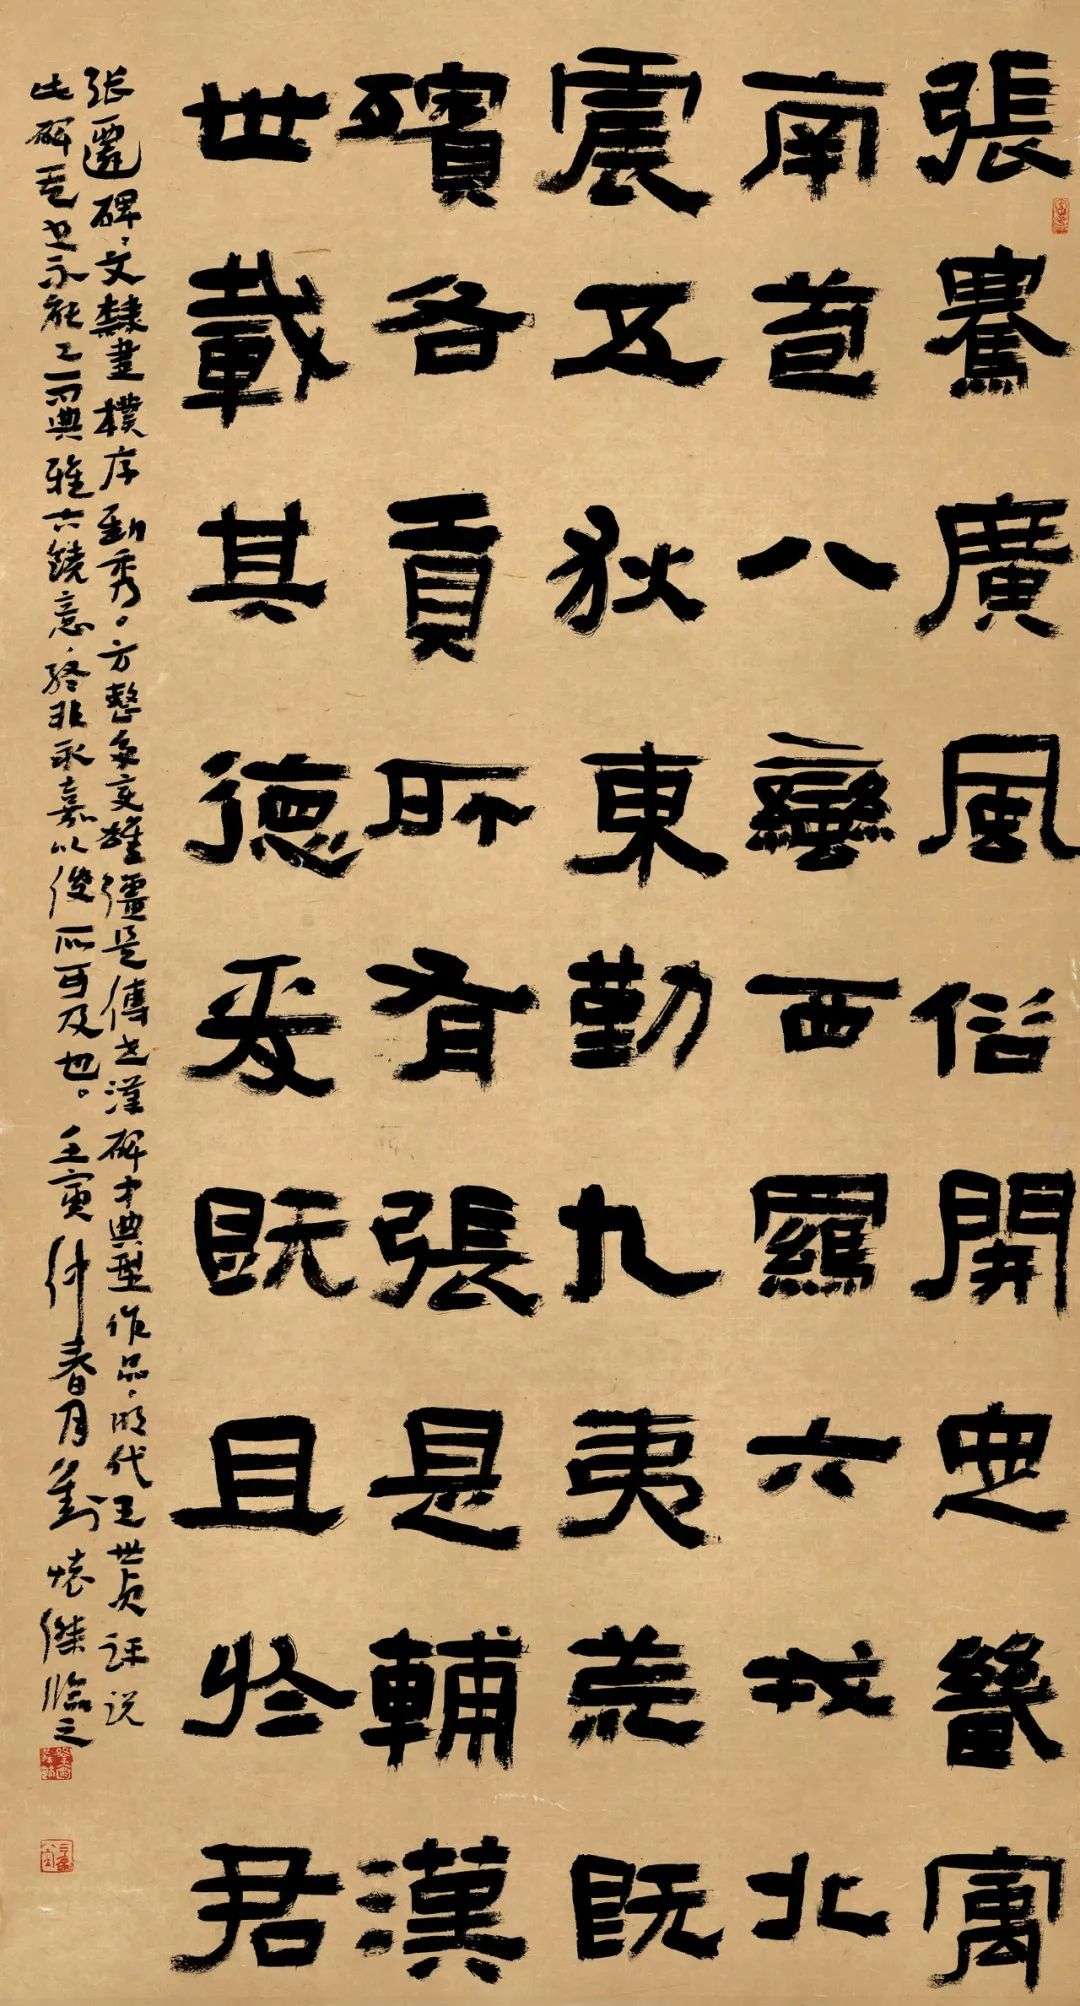 張騫廣風俗開定畿寓
南苞八蠻西羈六戎北
震五狄東勤九夷荒既
殯各貢所有張是輔漢
世載其德爰既且於君
張遷碑、文隸書樸厚勁秀。方整多變雄彊是傳世漢碑中典型作品、明代王世貞評說
此碑不能工而典雅古饒意、終非永嘉以後所可及也。壬寅仲春月劉懷傑臨之